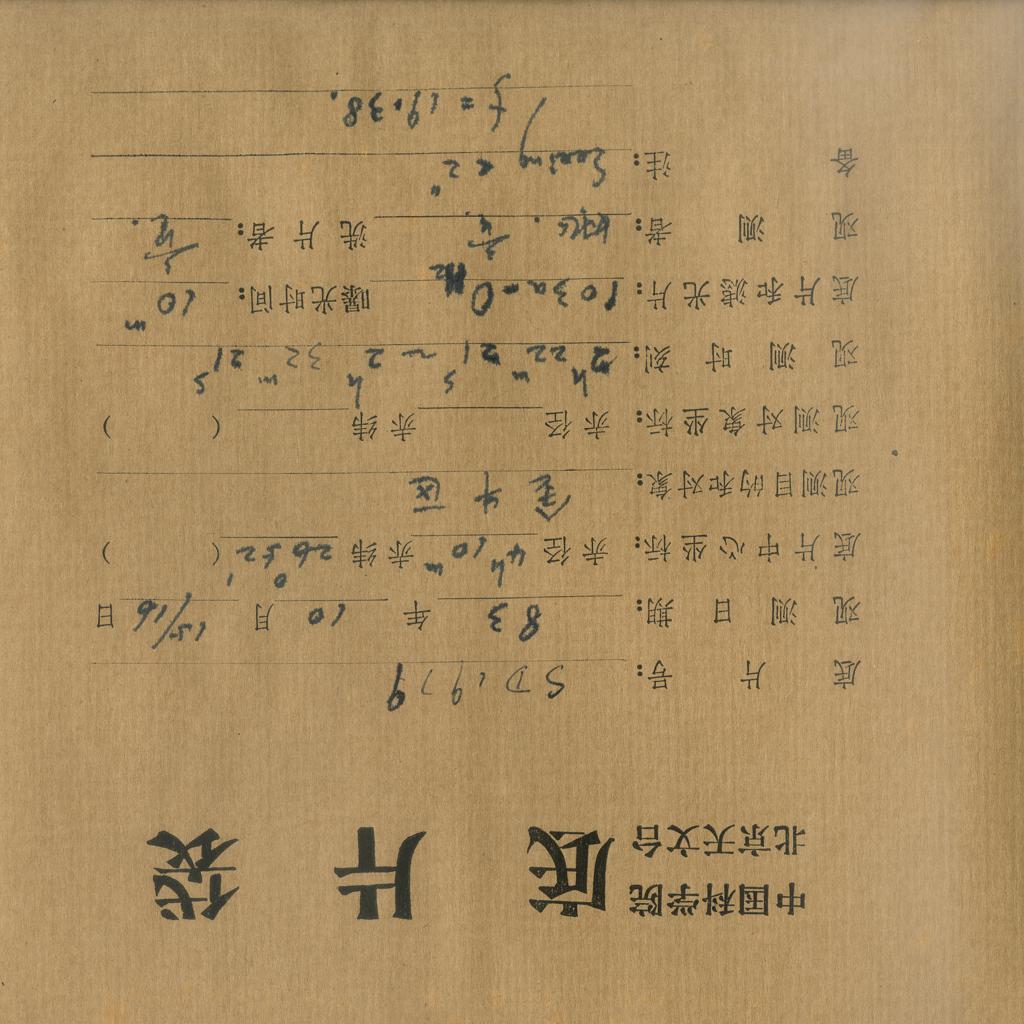 中国科学院
北京天文台
底片袋
底片号: SD1979
观测日期: 83年10月15/16日
底片中心坐标: 赤径 4h10m 赤纬 26°52′ ( )
观测目的和对象: 金牛区
观测对象坐标: 赤径 赤纬 ( )
观测时刻: 2h22m21s ~ 2h32m21s
底片和滤光片: 103a-O 曝光时间: 10m
观测者: 洗片者:
备注: Seeing < 2″
f = 19.38.